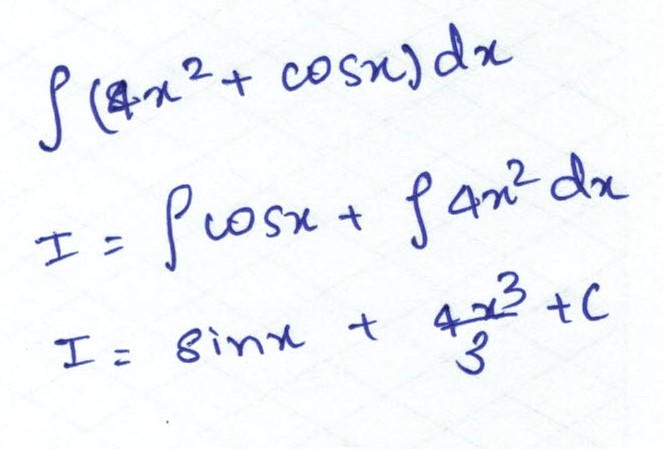 ∫(4x² + cosx) dx
I = ∫cosx + ∫4x² dx
I = sinx + 4x³/3 + C